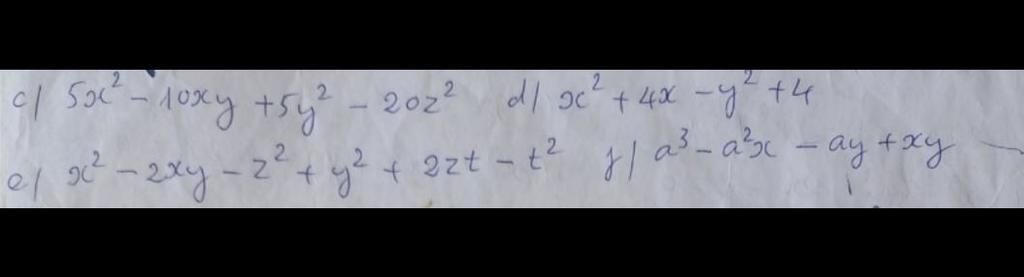 c/ 5x² - 10xy + 5y² - 20z² d/ x² + 4x - y² + 4
e/ x² - 2xy - z² + y² + 2zt - t² f/ a³ - a²x - ay + xy